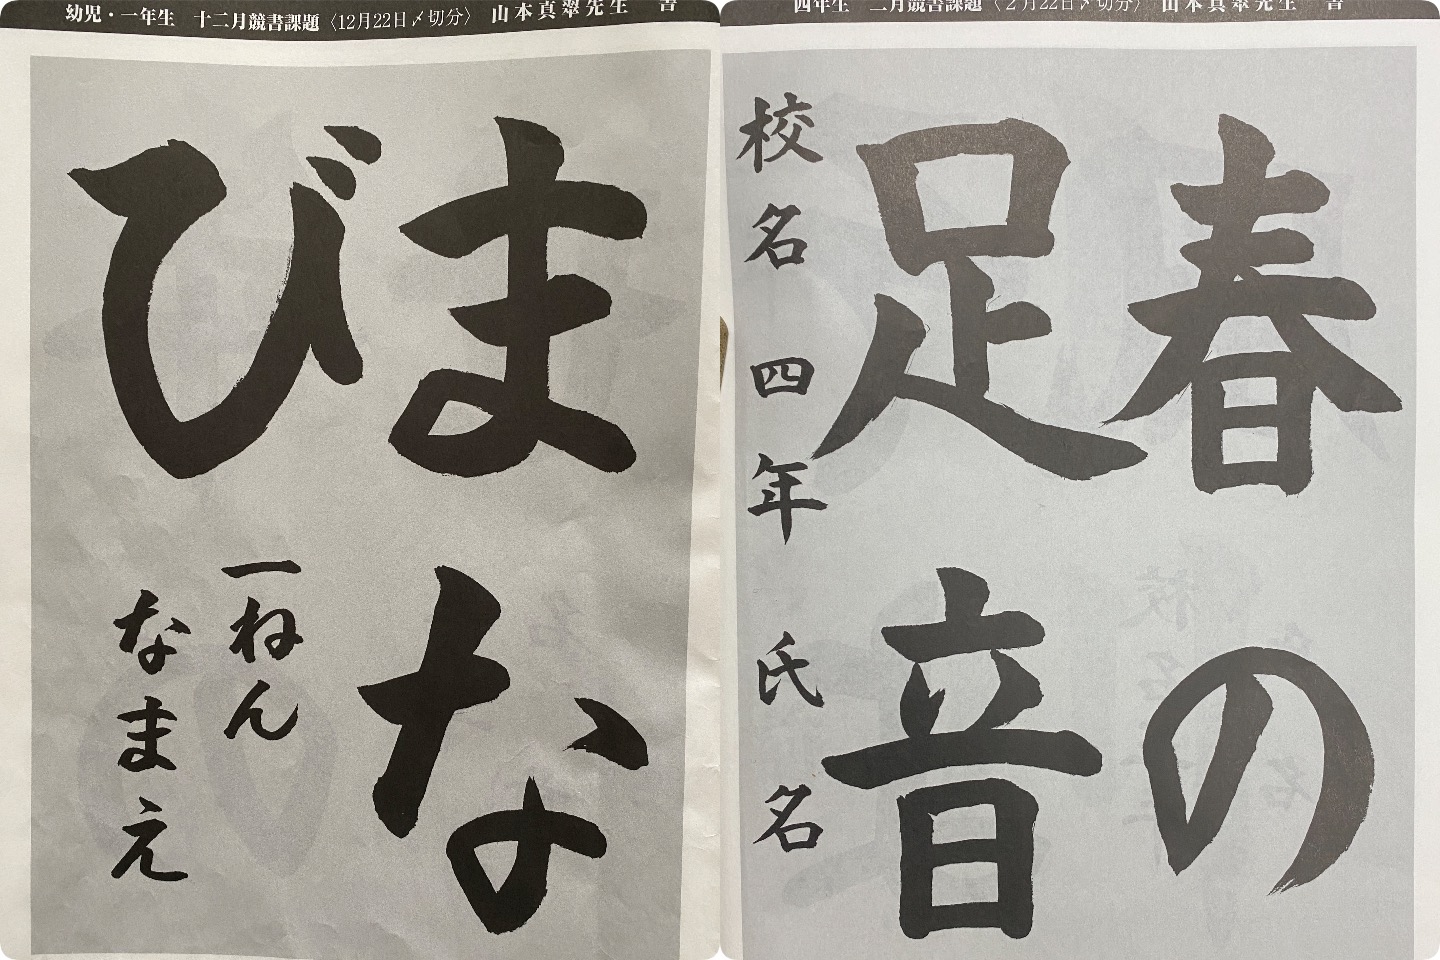 幼児・一年生 十二月競書課題〈12月22日〆切分〉 山本真翠先生 書
まな
び
一ねん
なまえ
四年生 二月競書課題〈2月22日〆切分〉 山本真翠先生 書
春の
足音
校名 四年 氏名